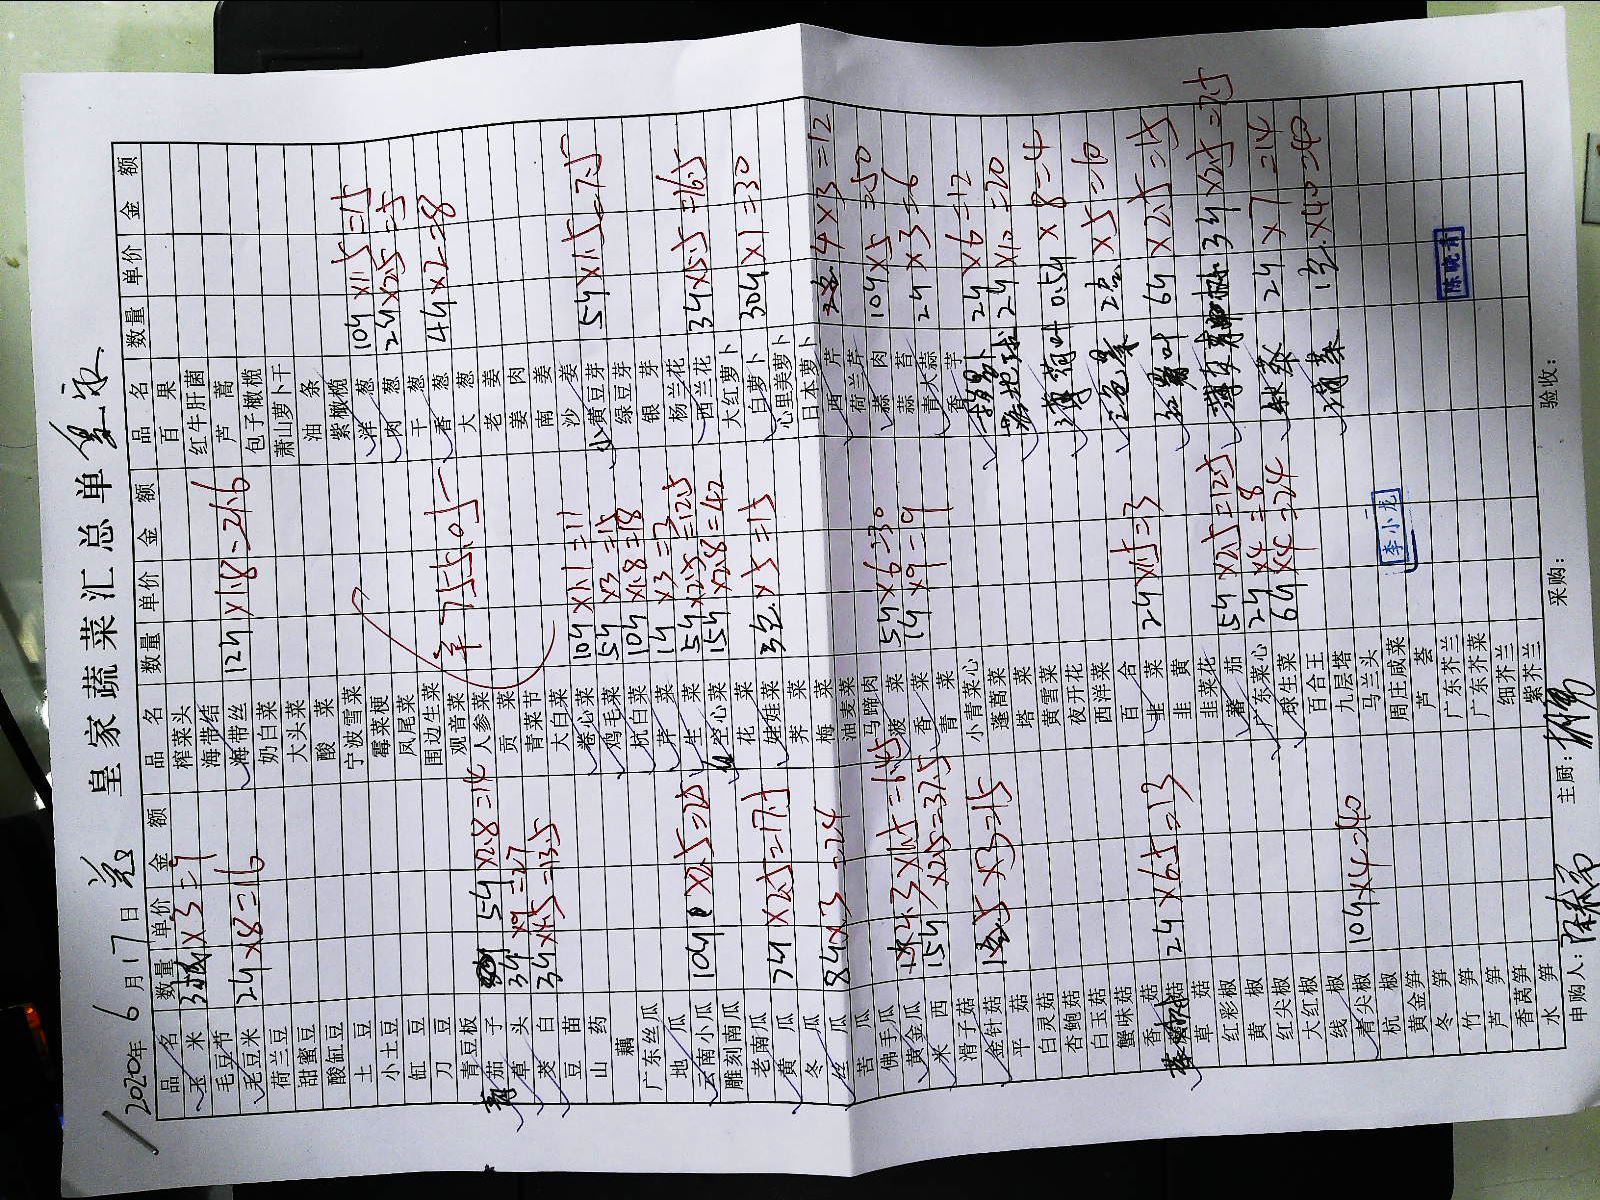 皇家蔬菜汇总单
2020年6月17日
品名 数量 单价 金额 品名 数量 单价 金额 品名 数量 单价 金额
玉米 ×3=9
毛豆节
毛豆米 24 ×8=16
荷兰豆
甜蜜豆
酸缸豆
土豆
小土豆
缸豆
刀豆
青豆板
茄子 54 ×2.8=14
草头 34 ×9=27
茭白 34 ×4.5=13.5
豆苗
山药
藕
广东丝瓜
地瓜
云南小瓜 104 ×2.5=25
雕刻南瓜
老南瓜
黄瓜 74 ×2.5=17.5
冬瓜
丝瓜 84 ×3=24
苦瓜
佛手瓜
黄金瓜
米西 154 ×2.5=37.5
滑子菇
金针菇 ×3=15
平菇
白灵菇
杏鲍菇
白玉菇
蟹味菇
香菇 24 ×6.5=13
草菇
红彩椒
黄椒
红尖椒
大红椒
线椒
青尖椒 104 ×4=40
杭椒
黄金笋
冬笋
竹笋
芦笋
香莴笋
水笋
榨菜头
海带结
海带丝 124 ×1.8=21.6
奶白菜
大头菜
酸菜
宁波雪菜
霉菜梗
凤尾菜
围边生菜
观音菜
人参菜
贡菜
青菜节
大白菜
卷心菜 104 ×1.1=11
鸡毛菜 54 ×3=15
杭白菜 104 ×1.8=18
芹菜 14 ×3=3
生菜 54 ×2.5=12.5
空心菜 154 ×2.8=42
花菜
娃娃菜 3包 ×5=15
荠菜
梅菜
油麦菜
马蹄肉
菠菜 54 ×6=30
香菜 14 ×9=9
青菜
小青菜心
蓬蒿菜
塔菜
黄雪菜
夜开花
西洋菜
百合
韭菜 24 ×1.5=3
韭黄
韭菜花
薯茄 54 ×2.5=12.5
广东菜心 24 ×4=8
球生菜 64 ×4=24
百合王
九层塔
马兰头
周庄咸菜
芦荟
广东芥兰
广东芥菜
细芥兰
紫芥兰
百果
红牛肝菌
芦蒿
包子橄榄
萧山萝卜干
油条
紫橄榄
洋葱 104 ×1.5=15
肉葱 24 ×2.5=5
干葱
香葱 44 ×2=8
大葱
老姜
姜肉
南姜
沙姜
小黄豆芽 54 ×1.5=7.5
绿豆芽
银芽
杨兰花
西兰花 34 ×5.5=16.5
大红萝卜
白萝卜 304 ×1=30
心里美萝卜
日本萝卜
西芹 4 ×3=12
荷兰芹
蒜肉 104 ×5=50
蒜苔 24 ×3=6
青大蒜
香芋 24 ×6=12
24 ×10=20
薄荷叶 0.54 ×8=4
2盒 ×5=10
64 ×2.5=15
34 ×2.5=7.5
秋葵 24 ×7=14
1包 ×40=40
¥755.05
李小龙
陈晓青
申购人：
主厨：
采购：
验收：